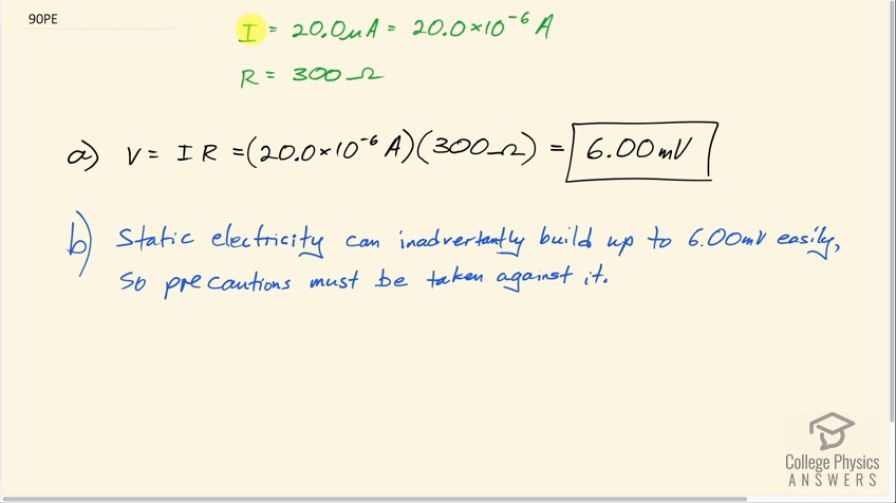 90PE
I = 20.0μA = 20.0×10⁻⁶ A
R = 300 Ω
a) V = I R = (20.0×10⁻⁶ A)(300Ω) = 6.00mV
b) Static electricity can inadvertantly build up to 6.00mV easily,
so precautions must be taken against it.
College Physics
ANSWERS